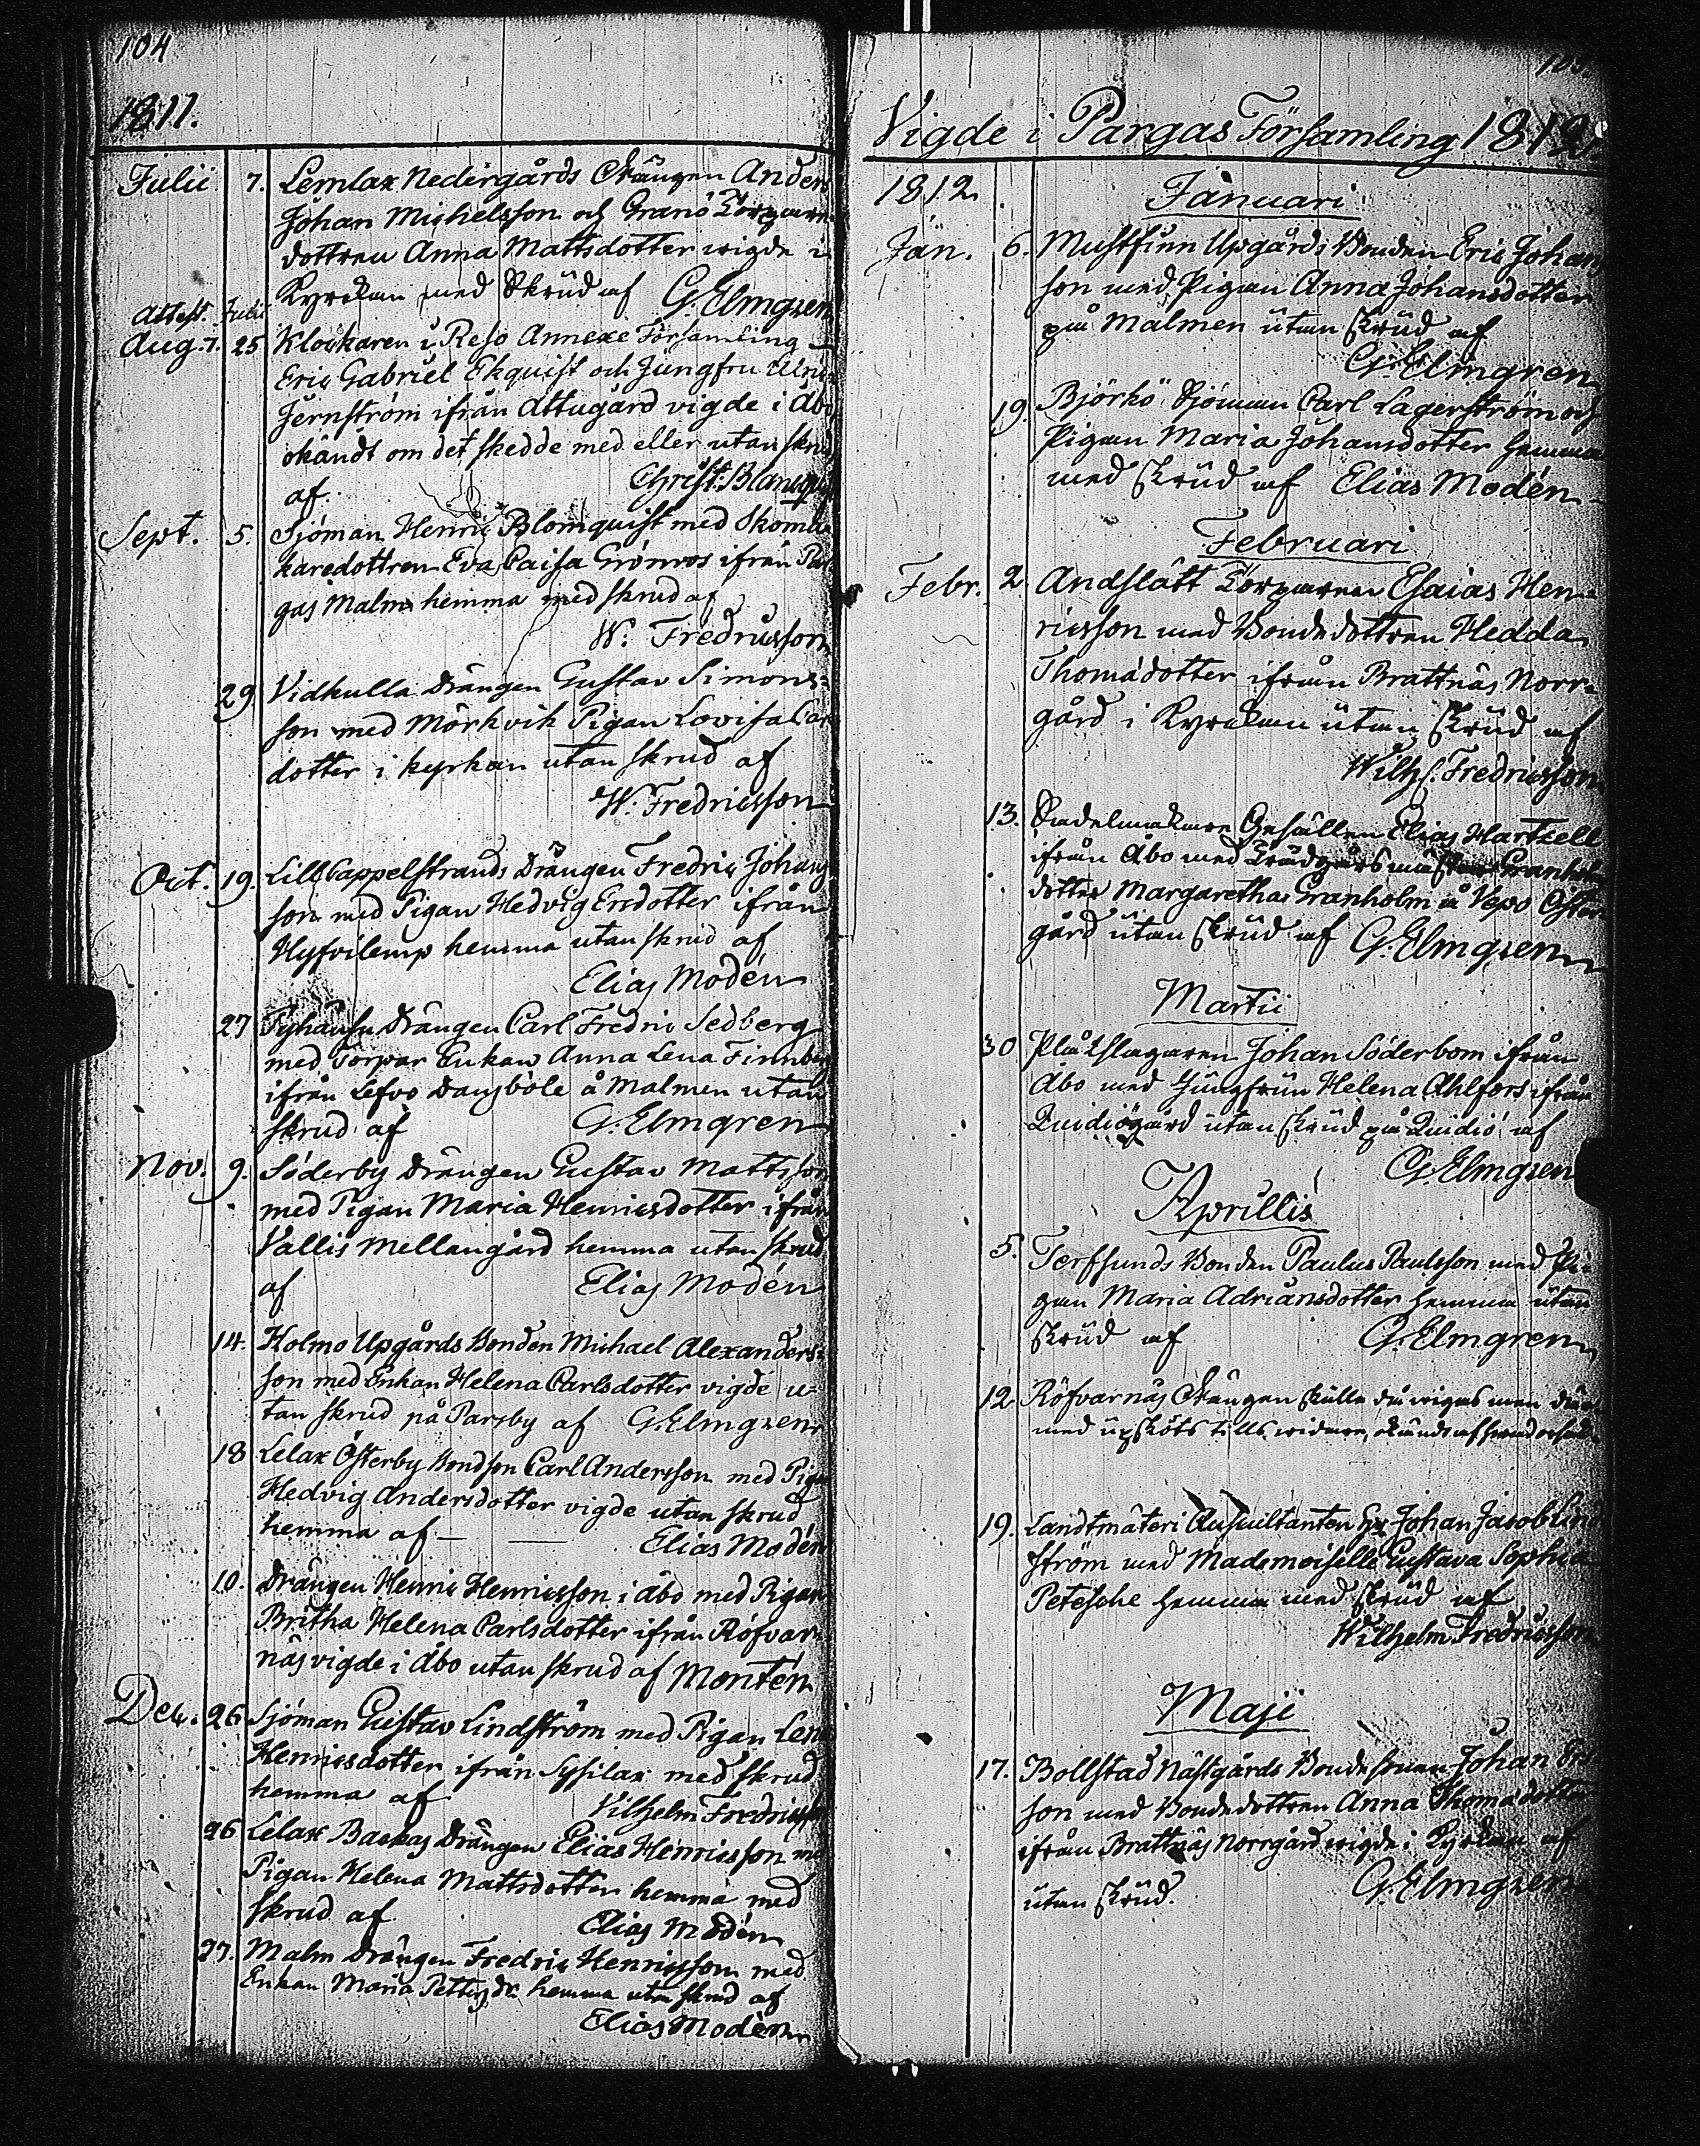 104
1811.
Julii. 7. Lemlax Nedergårds Drängen Anders
Johan Michelsson och Granö Torpare
dottren Anna Mattsdotter vigde i
Kyrckan med Skrud af G. Elmgren
Attest. Julii
Aug. 7. 25 Klockaren i Reso Annexe Församling
Eric Gabriel Ekquist och Jungfru Ulric
Jernström ifrån Attugård vigde i Åbo
okändt om det skedde med eller utan skrud
af Christ: Blanq
Sept. 5. Sjöman Henric Blomquist med Skoma
karedottren Eva Caisa Grönroos ifrån Par
gas Malm hemma med skrud af
W. Fredricsson
29. Vidkulla Drängen Gustav Simons-
son med Mörkvik Pigan Lovisa Car
dotter i kyrkan utan skrud af
W. Fredricsson
Oct. 19. Lill Cappelstrands Drängen Fredric Johans
son med Pigan Hedvig Ersdotter ifrån
Hyfvilemp hemma utan skrud af
Elias Modén
27 Tyhåusu Drängen Carl Fredric Sedberg
med Torpar Enkan Anna Lena Finnberg
ifrån Lefvo Dansböle å Malmen utan
skrud af G. Elmgren
Nov. 9. Söderby Drängen Gustav Mattsson
med Pigan Maria Henricsdotter ifrån
Vallis Mellangård hemma utan skrud
af Elias Modén
14. Kolmo Upgårds Bonden Michael Alexanders-
son med Enkan Helena Carlsdotter vigde u-
tan skrud på Parsby af G. Elmgren
18 Lelax Österby Bondson Carl Andersson med Pigan
Hedvig Andersdotter vigde utan skrud
hemma af — — Elias Modén
10. Drängen Henric Henricsson i Åbo med Pigan
Britha Helena Carlsdotter ifrån Röfvar-
näs vigde i Åbo utan skrud af Montén
Dec. 26 Sjöman Gustav Lindström med Pigan Lena
Henricsdotter ifrån Sysilax med skrud
hemma af Vilhelm Fredricsson
26 Lelax Backas Drängen Elias Henricsson med
Pigan Helena Mattsdotter hemma med
skrud af Elias Modén
27. Malm Drängen Fredric Henricsson med
Enkan Maria Petters dr. hemma utan skrud af
Elias Modén
105.
Vigde i Pargas Församling 1812.
1812. Januari
Jan. 6. Mustfinn Upgårds Bonden Eric Johans
son med Pigan Anna Johansdotter
på Malmen utan skrud af
G. Elmgren
19. Björkö Sjöman Carl Lagerström och
Pigan Maria Johansdotter hemma
med skrud af Elias Modén
Februari
Febr. 2 Andslätt Torparen Esaias Hen-
ricsson med Bondedottren Hedda
Thomådotter ifrån Brattnäs Norr-
gård i Kyrckan utan skrud af
Wilh. Fredricsson
13. Sadelmakare Gesällen Elias Hartzell
ifrån Åbo med Trädgårdsmästar Granholms
dotter Margaretha Granholm å Vepo Öster
gård utan skrud af G. Elmgren
Martii
30 Plåtslagaren Johan Söderbom ifrån
Åbo med Jungfrun Helena Ahlfors ifrån
Quidiögård utan skrud på Quidiö af
G. Elmgren
Aprillis
5. Terfsunds Bonden Paulus Paulsson med Pi-
gan Maria Adriansdotter hemma utan
skrud af G. Elmgren
12 Röfvarnäs Drängen skulle då vigas men där
med upsköts tills vidare,
19. Landtmäteri Auscultanten Hr Johan Jacob Lind
ström med Mademoiselle Gustava Sophia
Petesche hemma med skrud af
Wilhelm Fredricsson
Maji
17. Bollstad Nästgårds Bondesonen Johan Ers
son med Bondedottren Anna Thomådotter
ifrån Brattnäs Norrgård vigde i Kyrckan af
utan skrud. G. Elmgren